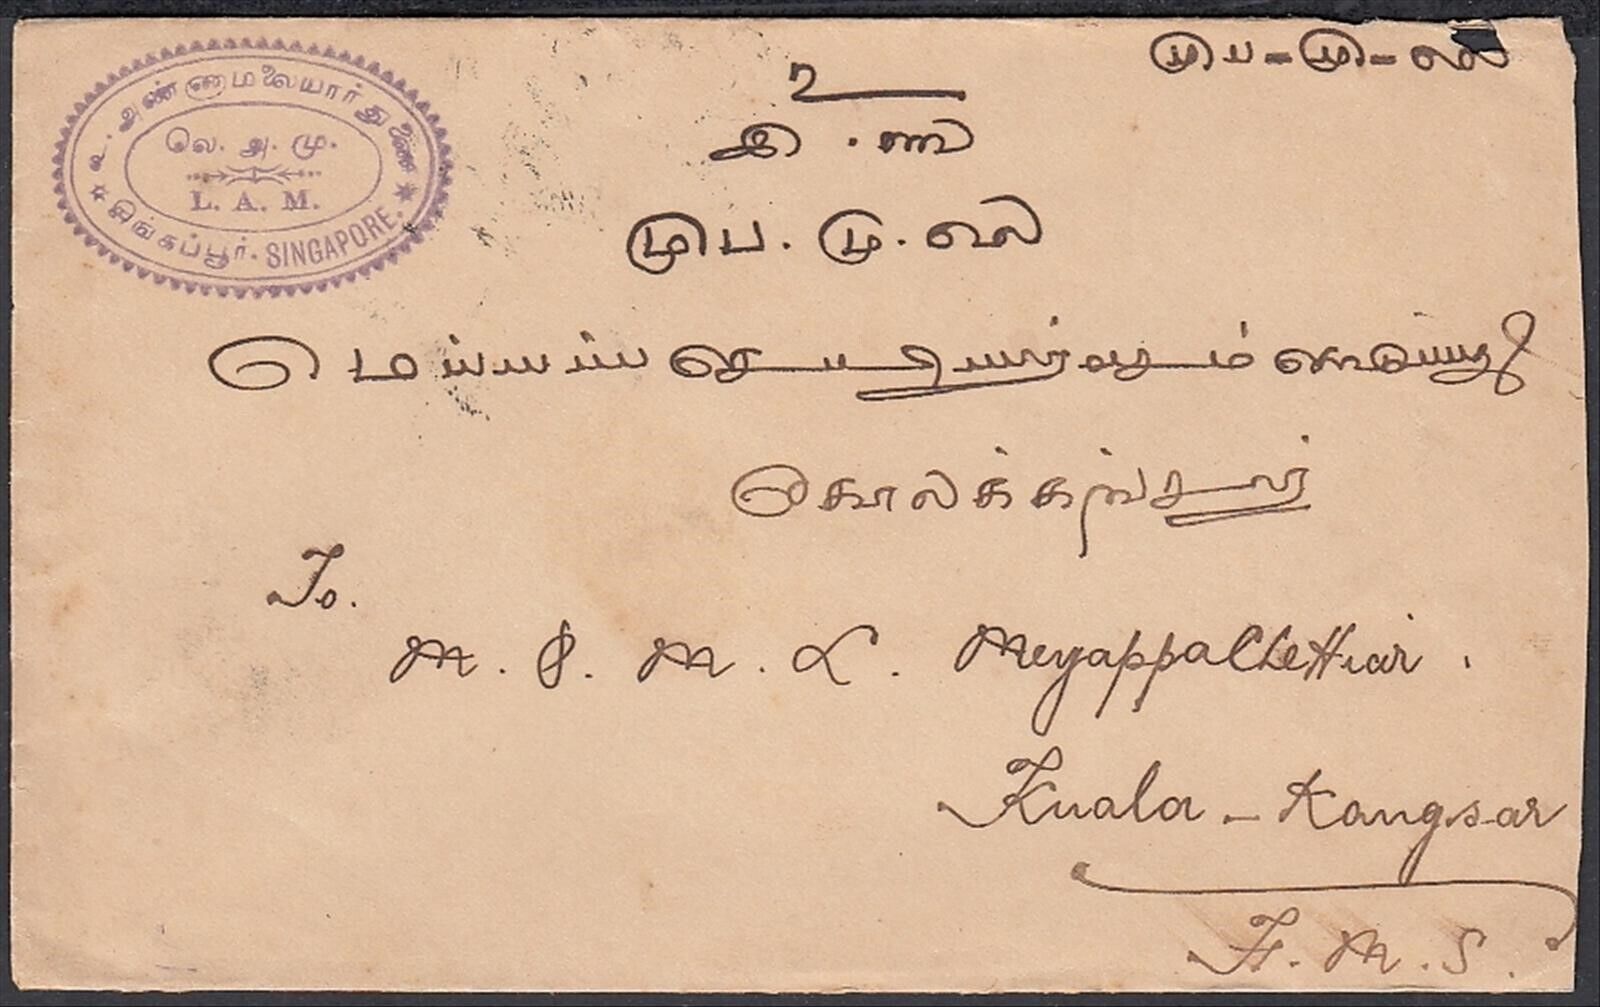 உ. அண்ணாமலையார் துணை
லெ. அ. மு.
L. A. M.
சிங்கப்பூர். SINGAPORE.
முப-மு-லெ
உ
முப. மு. லெ
மெய்யப்ப செட்டியாரவர்களுக்கு
கோலக்கங்சார்
To.
M. P. M. L. Meyappa Chettiar.
Kuala - Kangsar
F. M. S.